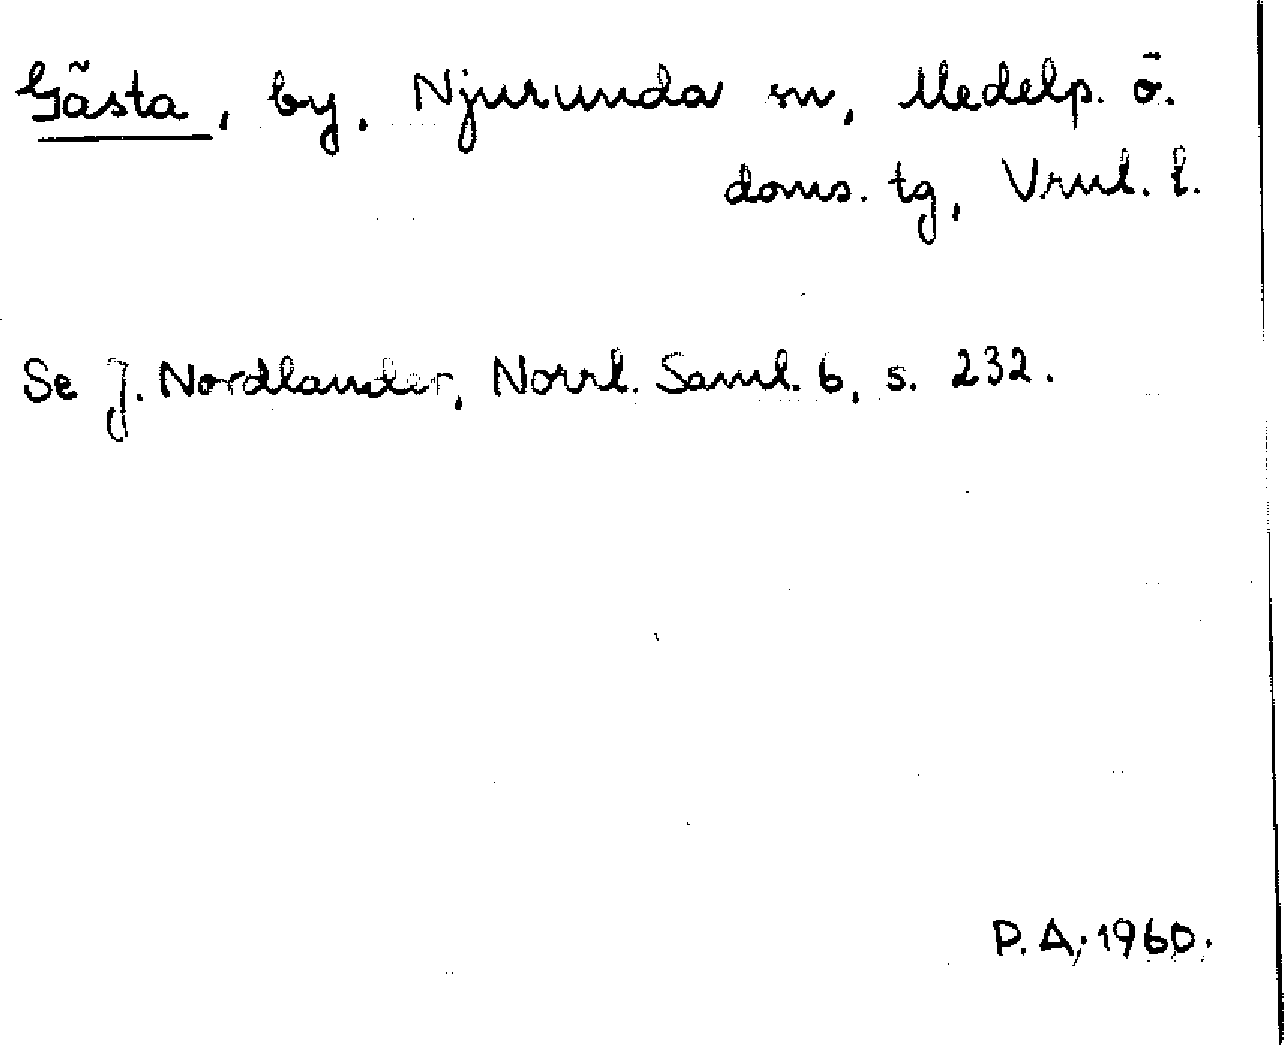 Gästa, by, Njurunda sn, Medelp. ö.
doms. tg, Vrnl. l.
Se J. Nordlander, Norrl. Saml. 6, s. 232.
P. A, 1960.